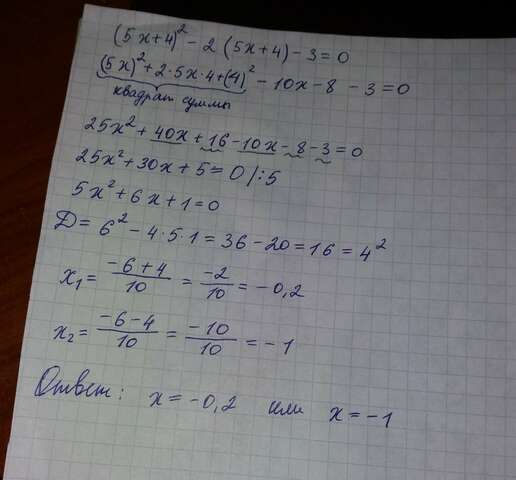 (5x+4)² - 2(5x+4) - 3 = 0
(5x)² + 2·5x·4 + (4)² - 10x - 8 - 3 = 0
квадрат суммы
25x² + 40x + 16 - 10x - 8 - 3 = 0
25x² + 30x + 5 = 0 /:5
5x² + 6x + 1 = 0
D = 6² - 4·5·1 = 36 - 20 = 16 = 4²
x₁ = (-6+4)/10 = -2/10 = -0,2
x₂ = (-6-4)/10 = -10/10 = -1
Ответ: x = -0,2 или x = -1